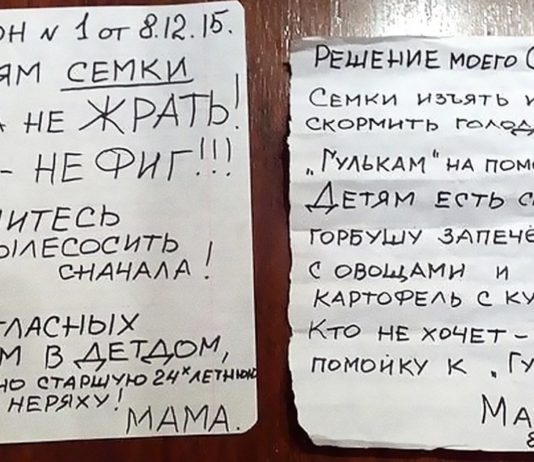 ОН N 1 от 8.12.15.
ЯМ СЕМКИ
НЕ ЖРАТЬ!
- НЕ ФИГ!!!
ИТЕСЬ
ЫЛЕСОСИТЬ
СНАЧАЛА!
ГЛАСНЫХ
М В ДЕТДОМ,
НО СТАРШУЮ 24х ЛЕТНЮЮ
НЕРЯХУ!
МАМА.
РЕШЕНИЕ МОЕГО С
СЕМКИ ИЗЪЯТЬ И
СКОРМИТЬ ГОЛОД
„ГУЛЬКАМ" НА ПОМО
ДЕТЯМ ЕСТЬ С
ГОРБУШУ ЗАПЕЧЁ
С ОВОЩАМИ И
КАРТОФЕЛЬ С КУ
КТО НЕ ХОЧЕТ -
ПОМОЙКУ К „ГУ
МА
8